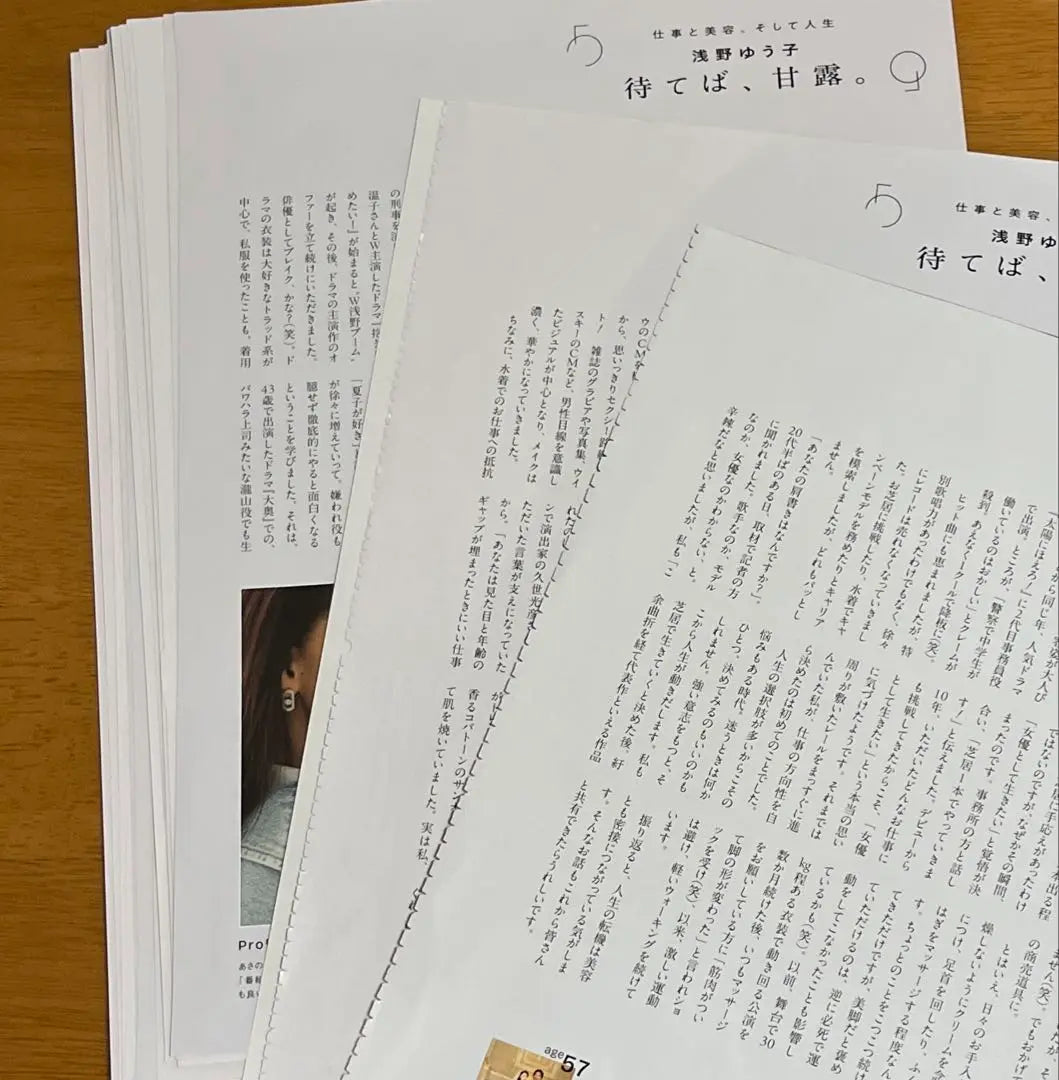 5
仕事と美容。そして人生
9
浅野ゆう子
待てば、甘露。
の刑事を演
温子さんとW主演したドラマ『抱き
めたい!』が始まると〝W浅野ブーム〟
が起き、その後、ドラマの主演作のオ
ファーを立て続けにいただきました。
俳優としてブレイク、かな?(笑)。ド
ラマの衣装は大好きなトラッド系が
中心で、私服を使ったことも。着用
『夏子が好き
が徐々に増えていって。嫌われ役も
臆せず徹底的にやると面白くなる
ということを学びました。それは、
43歳で出演したドラマ『大奥』での、
パワハラ上司みたいな瀧山役でも生
Prof
あさの
『番組
も良い
5
仕事と美容、
浅野ゆ
待てば、
ウのCMを
から、思いっきりセクシー路線
ト! 雑誌のグラビアや写真集、ウイ
スキーのCMなど、男性目線を意識し
たビジュアルが中心となり、メイクは
濃く、華やかになっていきました。
ちなみに、水着でのお仕事への抵抗
れたの
ンで演出家の久世光彦さ
ただいた言葉が支えになっていた
から。「あなたは見た目と年齢の
ギャップが埋まったときにいい仕事
が
香るコパトーンのサン
て肌を焼いていました。実は私、
から同じ年、人気ドラマ
『太陽にほえろ!』に2代目事務員役
で出演。ところが、「警察で中学生が
働いているのはおかしい」とクレームが
殺到。あえなく1クールで降板に(笑)。
ヒット曲にも恵まれましたが、特
別歌唱力があったわけでもなく、徐々
にレコードは売れなくなっていきまし
た。お芝居に挑戦したり、水着でキャ
ンペーンモデルを務めたりとキャリア
を模索しましたが、どれもパッとし
ません。
「あなたの肩書きはなんですか?」。
20代半ばのある日、取材で記者の方
に聞かれました。歌手なのか、モデル
なのか、女優なのかわからない、と。
辛辣だなと思いましたが、私も「こ
居に手応えがあったわけ
ではないのですが、なぜかその瞬間、
「女優として生きたい」と覚悟が決
まったのです。事務所の方と話し
合い、「芝居1本でやっていきま
す!」と伝えました。デビューから
10年、いただいたどんなお仕事に
も挑戦してきたからこそ、「女優
として生きたい」という本当の思い
に気づけたようです。それまでは
周りが敷いたレールをまっすぐに進
んでいた私が、仕事の方向性を自
ら決めたのは初めてのことでした。
人生の選択肢が多いからこその
悩みもある時代。迷うときは何か
ひとつ、決めてみるのもいいのかも
しれません。強い意志をもつと、そ
こから人生が動きだします。私も
芝居で生きていくと決めた後、紆
余曲折を経て代表作といえる作品
ません(笑)。でもおかげで
の商売道具に。
とはいえ、日々のお手入
燥しないようにクリームを念
につけ、足首を回したり、ふく
はぎをマッサージする程度なん
す。ちょっとのことをこつこつ続け
てきただけですが、美脚だと褒め
ていただけるのは、逆に必死で運
動をしてこなかったことも影響し
ているかも(笑)。以前、舞台で30
kg程ある衣装で動き回る公演を
数か月続けた後、いつもマッサージ
をお願いしている方に「筋肉がつい
て脚の形が変わった」と言われショ
ックを受け(笑)、以来、激しい運動
は避け、軽いウォーキングを続けて
います。
振り返ると、人生の転機は美容
とも密接につながっている気がしま
す。そんなお話もこれから皆さん
と共有できたらうれしいです。
age57